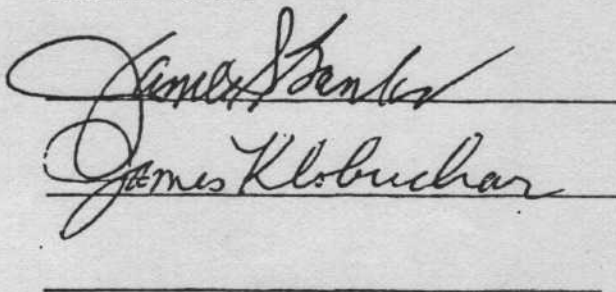 James S Banks
James Klobuchar